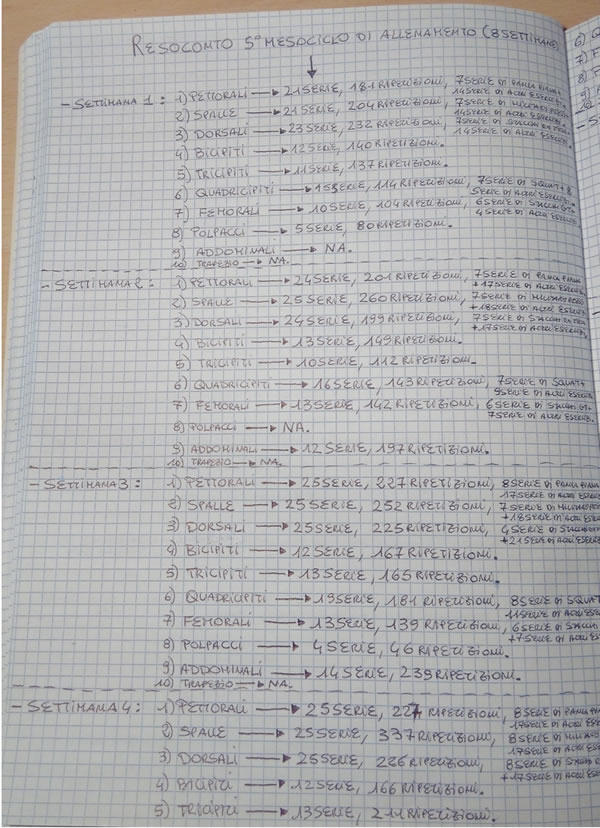 RESOCONTO 5° MESOCICLO DI ALLENAMENTO (8 SETTIMANE)
- SETTIMANA 1: 1) PETTORALI → 21 SERIE, 181 RIPETIZIONI, 7 SERIE DI PANCA PIANA
14 SERIE DI ALTRI ESERCIZI.
2) SPALLE → 21 SERIE, 204 RIPETIZIONI, 7 SERIE DI
14 SERIE DI ALTRI ESERCIZI.
3) DORSALI → 23 SERIE, 232 RIPETIZIONI, 7 SERIE DI STACCHI
14 SERIE DI ALTRI ESERCIZI.
4) BICIPITI → 12 SERIE, 140 RIPETIZIONI.
5) TRICIPITI → 11 SERIE, 137 RIPETIZIONI.
6) QUADRICIPITI → 15 SERIE, 114 RIPETIZIONI, 7 SERIE DI SQUAT + 8
SERIE DI ALTRI ESERCIZI.
7) FEMORALI → 10 SERIE, 104 RIPETIZIONI, 6 SERIE DI STACCHI GT+
4 SERIE DI ALTRI ESERCIZI.
8) POLPACCI → 5 SERIE, 80 RIPETIZIONI.
9) ADDOMINALI → NA.
10) TRAPEZIO → NA.
- SETTIMANA 2: 1) PETTORALI → 24 SERIE, 201 RIPETIZIONI, 7 SERIE DI PANCA PIANA
+ 17 SERIE DI ALTRI ESERCIZI.
2) SPALLE → 25 SERIE, 260 RIPETIZIONI, 7 SERIE DI
+ 18 SERIE DI ALTRI ESERCIZI.
3) DORSALI → 24 SERIE, 199 RIPETIZIONI, 7 SERIE DI STACCHI
+ 17 SERIE DI ALTRI ESERCIZI.
4) BICIPITI → 13 SERIE, 149 RIPETIZIONI.
5) TRICIPITI → 10 SERIE, 112 RIPETIZIONI.
6) QUADRICIPITI → 16 SERIE, 143 RIPETIZIONI, 7 SERIE DI SQUAT +
9 SERIE DI ALTRI ESERCIZI.
7) FEMORALI → 13 SERIE, 142 RIPETIZIONI, 6 SERIE DI STACCHI GT+
7 SERIE DI ALTRI ESERCIZI.
8) POLPACCI → NA.
9) ADDOMINALI → 12 SERIE, 197 RIPETIZIONI.
10) TRAPEZIO → NA.
- SETTIMANA 3: 1) PETTORALI → 25 SERIE, 227 RIPETIZIONI, 8 SERIE DI PANCA PIANA
17 SERIE DI ALTRI ESER
2) SPALLE → 25 SERIE, 252 RIPETIZIONI, 7 SERIE DI
+ 18 SERIE DI ALTRI ESE
3) DORSALI → 25 SERIE, 225 RIPETIZIONI, 4 SERIE DI STACCHI
+ 21 SERIE DI ALTRI ESE
4) BICIPITI → 12 SERIE, 167 RIPETIZIONI.
5) TRICIPITI → 13 SERIE, 165 RIPETIZIONI.
6) QUADRICIPITI → 19 SERIE, 181 RIPETIZIONI, 8 SERIE DI SQUAT
11 SERIE DI ALTRI ESE
7) FEMORALI → 13 SERIE, 139 RIPETIZIONI, 6 SERIE DI STACCO
+ 7 SERIE DI ALTRI ESE
8) POLPACCI → 4 SERIE, 46 RIPETIZIONI.
9) ADDOMINALI → 14 SERIE, 239 RIPETIZIONI.
10) TRAPEZIO → NA.
- SETTIMANA 4: 1) PETTORALI → 25 SERIE, 227 RIPETIZIONI, 8 SERIE DI PANCA PIA
17 SERIE DI ALTRI ESE
2) SPALLE → 25 SERIE, 337 RIPETIZIONI, 8 SERIE DI
17 SERIE DI ALTRI ESE
3) DORSALI → 25 SERIE, 226 RIPETIZIONI, 8 SERIE DI
+ 17 SERIE DI ALTRI ESE
4) BICIPITI → 12 SERIE, 166 RIPETIZIONI.
5) TRICIPITI → 13 SERIE, 211 RIPETIZIONI.
6) Q
7) F
8) P
9)
10
- S